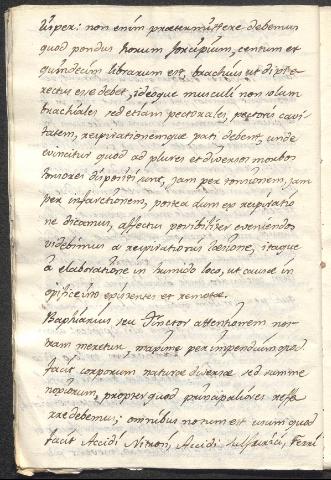 uiper: non enim prætermittere debemus
quod pondus horum forcipium, centum et
quindecim librarum est, brachius ut dipte-
rectus esse debet, ideoque musculi non solum
brachiales sed etiam pectorales, pectoris cavi-
tatem, respirationemque pati debent, unde
evincitur quod ad plures et diversos morbos
tonsores dispositi sunt, jam per tonsionem, jam
per infarctionem, postea dum ex respiratio
ne dicamus, affectus possibiliter eveniendos
videbimus a respirationis læsione, itaque
à elaboratione in humido loco, ut causæ in
opificeis existentes et remotæ.
Baphiarius seu Tinctor attentionem nos-
tram meretur, maxime per impendium quod
facit corporum naturæ diversæ sed summe
noxiorum, propter quod principaliores refer
re debemus; omnibus notum est usum quod
facit Accidi Nitrosi, Accidi sulfurici, Ferri